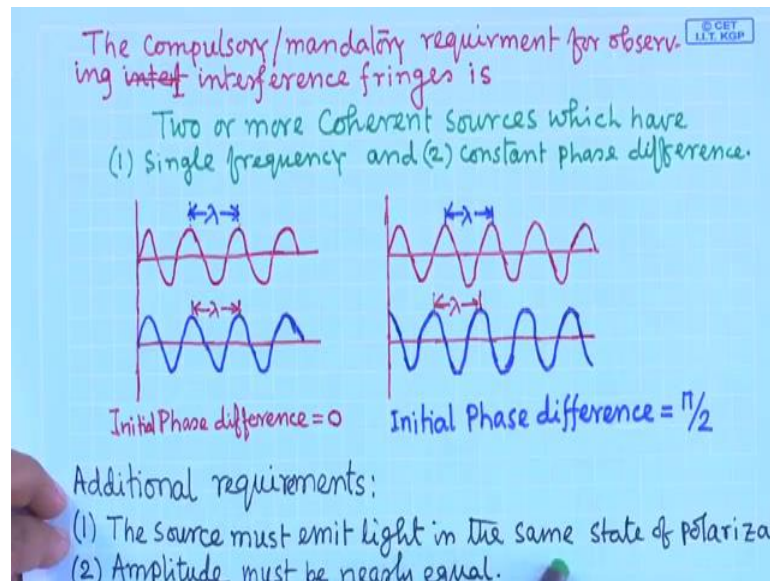 © CET
I.I.T. KGP
The Compulsory/mandatory requirment for observ-
ing interference fringes is
Two or more Coherent sources which have
(1) Single frequency and (2) Constant phase difference.
←λ→ ←λ→
←λ→ ←λ→
Initial Phase difference = 0 Initial Phase difference = π/2
Additional requirements:
(1) The source must emit light in the same state of polariza
(2) Amplitude must be nearly equal.